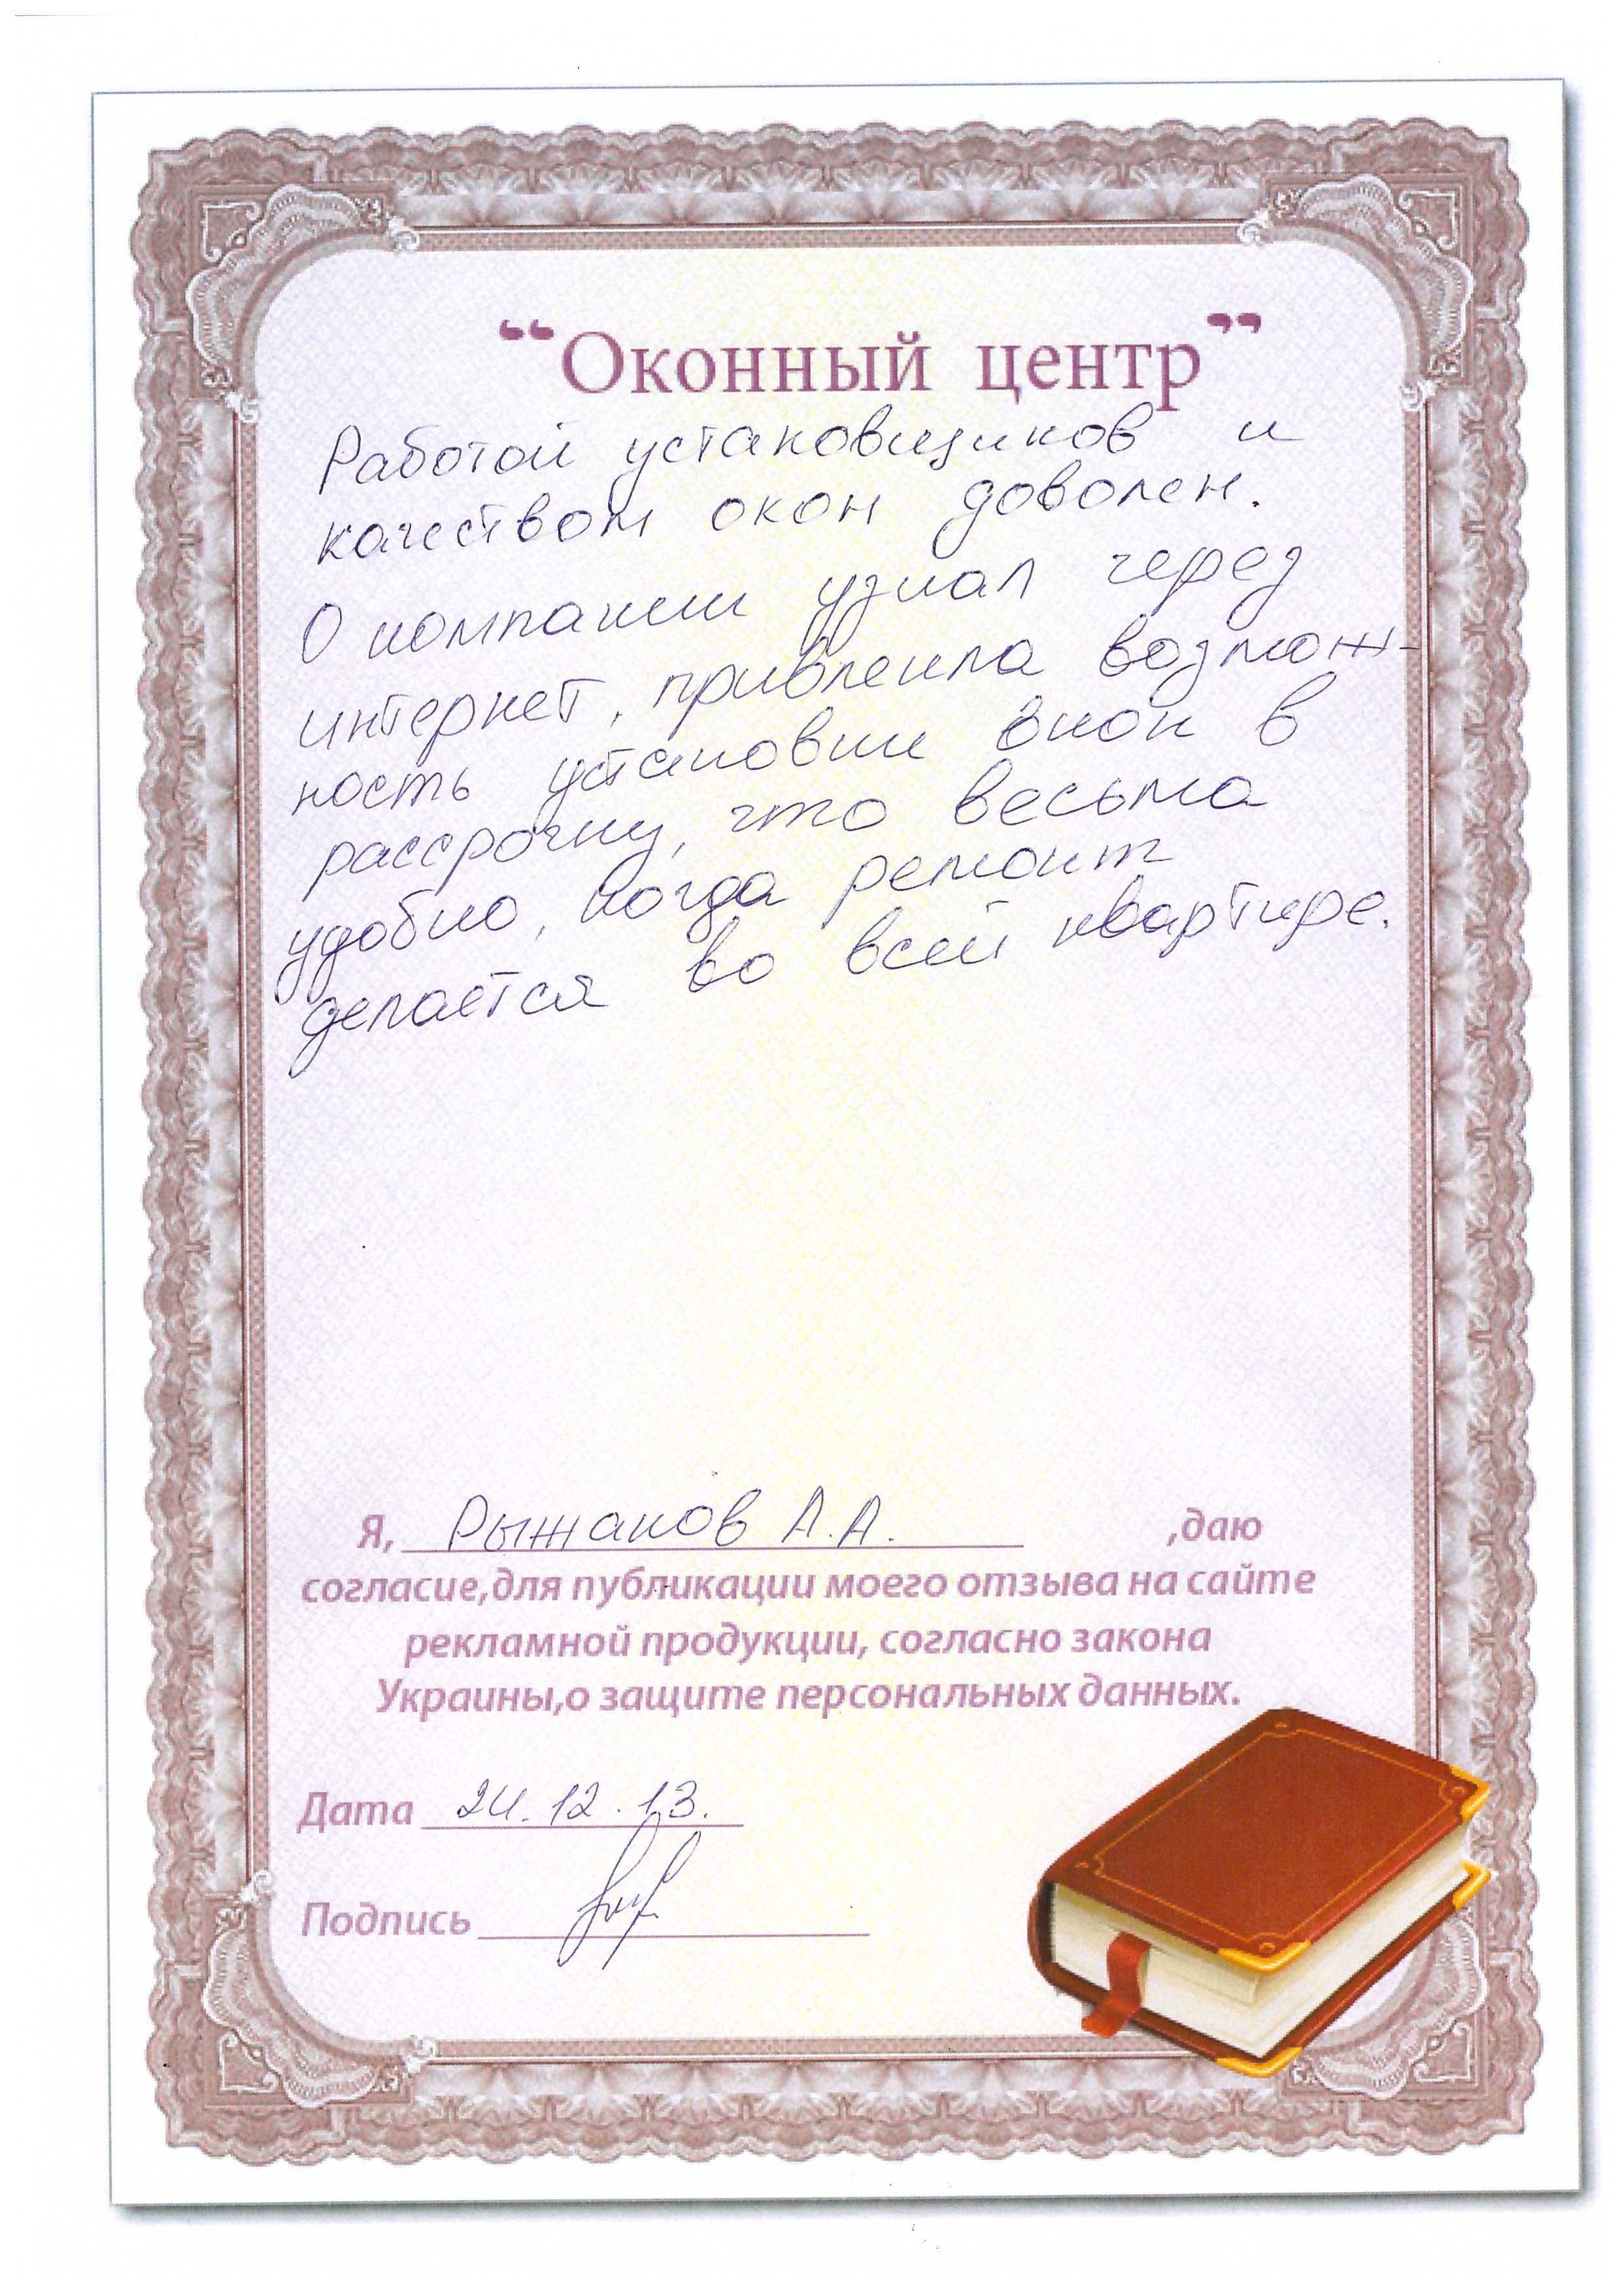 “Оконный центр”
Работой установщиков и
качеством окон доволен.
О компании узнал через
интернет, привлекла возмож-
ность установки окон в
рассрочку, что весьма
удобно, когда ремонт
делается во всей квартире.
Я, Рыжаков А.А. ,даю
согласие,для публикации моего отзыва на сайте
рекламной продукции, согласно закона
Украины,о защите персональных данных.
Дата 24.12.13.
Подпись